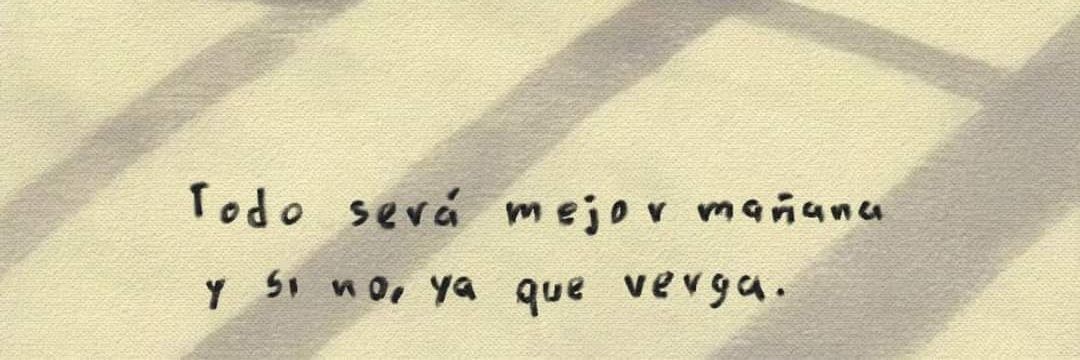 Todo será mejor mañana
y si no, ya que verga.